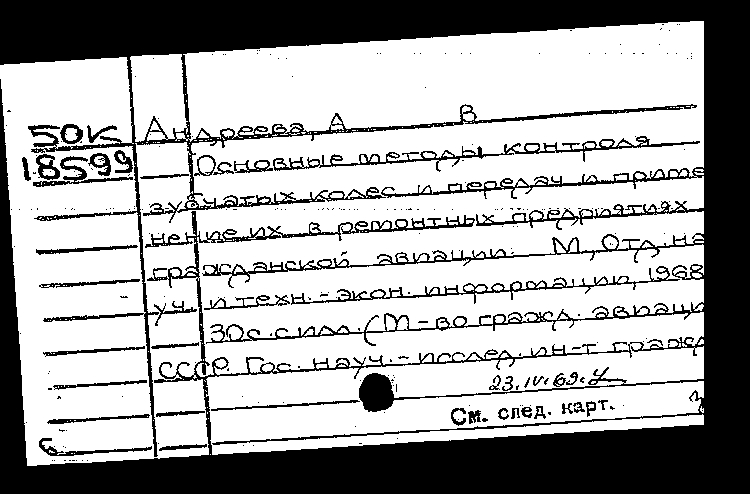 50К Андреева, А В
18599 Основные методы контроля
зубчатых колес и передач и приме
нение их в ремонтных предприятиях
гражданской авиации. М, Отд. на
уч. и техн.-экон. информации, 1968
30с. с илл. (М-во гражд. авиаци
СССР. Гос. науч.-исслед. ин-т гражд
23.IV.69.
См. след. карт.